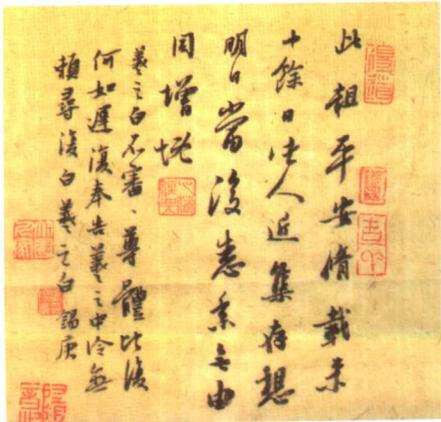 此粗平安脩載来
十餘日諸人近集存想
明日當復悉来无由
同增慨
羲之白不審尊體比復
何如遲復奉告羲之中冷無
賴尋復白羲之白 錫庚